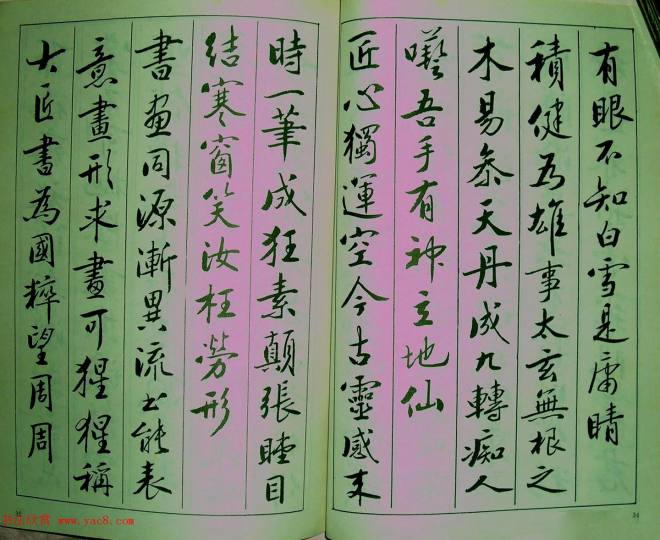 有眼不知白雪是庸睛
積健為雄事太玄無根之
木易參天丹成九轉痴人
囈吾手有神立地仙
匠心獨運空今古靈感来
時一筆成狂素顛張瞠目
結寒窗笑汝枉勞形
書画同源漸異流書能表
意畫形求畫可猩猩稱
大匠書為國粹望周周
34
书法欣赏 www.yac8.com